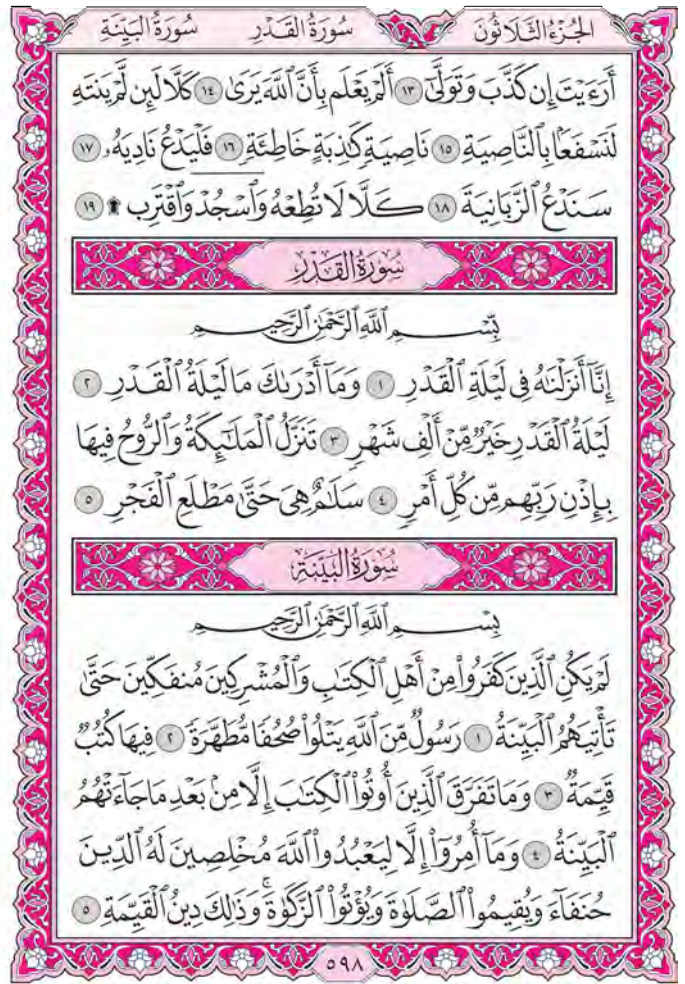 الجُزْءُ الثَّلَاثُونَ سُورَةُ القَدْرِ سُورَةُ البَيِّنَةِ
أَرَءَيْتَ إِن كَذَّبَ وَتَوَلَّىٰٓ ١٣ أَلَمْ يَعْلَم بِأَنَّ ٱللَّهَ يَرَىٰ ١٤ كَلَّا لَئِن لَّمْ يَنتَهِ
لَنَسْفَعَۢا بِٱلنَّاصِيَةِ ١٥ نَاصِيَةٍ كَٰذِبَةٍ خَاطِئَةٍ ١٦ فَلْيَدْعُ نَادِيَهُۥ ١٧
سَنَدْعُ ٱلزَّبَانِيَةَ ١٨ كَلَّا لَا تُطِعْهُ وَٱسْجُدْ وَٱقْتَرِب ۩ ١٩
سُورَةُ القَدْرِ
بِسْمِ ٱللَّهِ ٱلرَّحْمَٰنِ ٱلرَّحِيمِ
إِنَّآ أَنزَلْنَٰهُ فِى لَيْلَةِ ٱلْقَدْرِ ١ وَمَآ أَدْرَىٰكَ مَا لَيْلَةُ ٱلْقَدْرِ ٢
لَيْلَةُ ٱلْقَدْرِ خَيْرٌ مِّنْ أَلْفِ شَهْرٍ ٣ تَنَزَّلُ ٱلْمَلَٰٓئِكَةُ وَٱلرُّوحُ فِيهَا
بِإِذْنِ رَبِّهِم مِّن كُلِّ أَمْرٍ ٤ سَلَٰمٌ هِىَ حَتَّىٰ مَطْلَعِ ٱلْفَجْرِ ٥
سُورَةُ البَيِّنَةِ
بِسْمِ ٱللَّهِ ٱلرَّحْمَٰنِ ٱلرَّحِيمِ
لَمْ يَكُنِ ٱلَّذِينَ كَفَرُوا۟ مِنْ أَهْلِ ٱلْكِتَٰبِ وَٱلْمُشْرِكِينَ مُنفَكِّينَ حَتَّىٰ
تَأْتِيَهُمُ ٱلْبَيِّنَةُ ١ رَسُولٌ مِّنَ ٱللَّهِ يَتْلُوا۟ صُحُفًا مُّطَهَّرَةً ٢ فِيهَا كُتُبٌ
قَيِّمَةٌ ٣ وَمَا تَفَرَّقَ ٱلَّذِينَ أُوتُوا۟ ٱلْكِتَٰبَ إِلَّا مِنۢ بَعْدِ مَا جَآءَتْهُمُ
ٱلْبَيِّنَةُ ٤ وَمَآ أُمِرُوٓا۟ إِلَّا لِيَعْبُدُوا۟ ٱللَّهَ مُخْلِصِينَ لَهُ ٱلدِّينَ
حُنَفَآءَ وَيُقِيمُوا۟ ٱلصَّلَوٰةَ وَيُؤْتُوا۟ ٱلزَّكَوٰةَ ۚ وَذَٰلِكَ دِينُ ٱلْقَيِّمَةِ ٥
٥٩٨